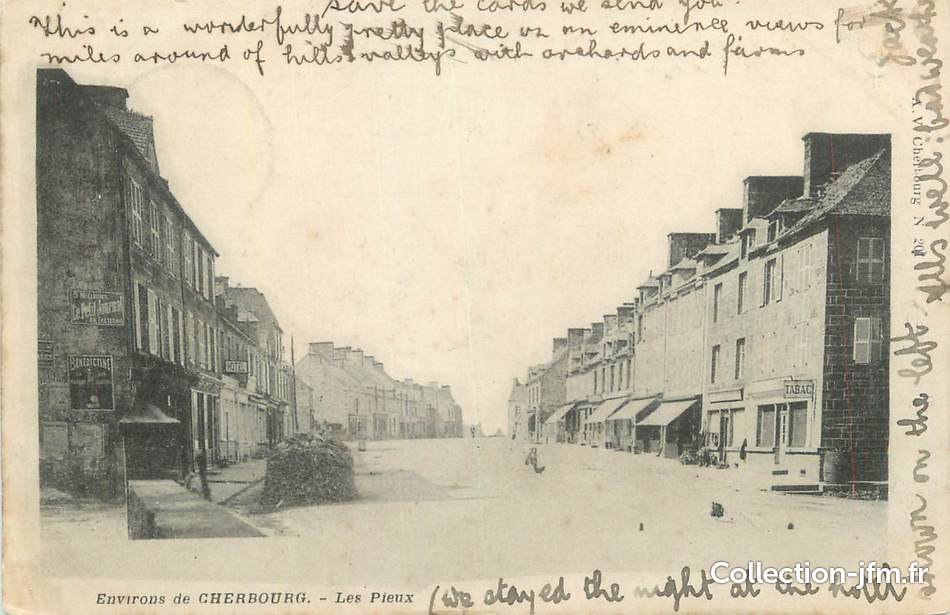 save the cards we send you.
This is a wonderfully pretty place on an eminence views for
miles around of hills & valleys with orchards and farms
LE Petit Journal
BÉNÉDICTINE
TABAC
Environs de CHERBOURG. - Les Pieux
(we stayed the night at the hotel
shown on the left
All well
Jack
Cherbourg N 20
Collection-jfm.fr